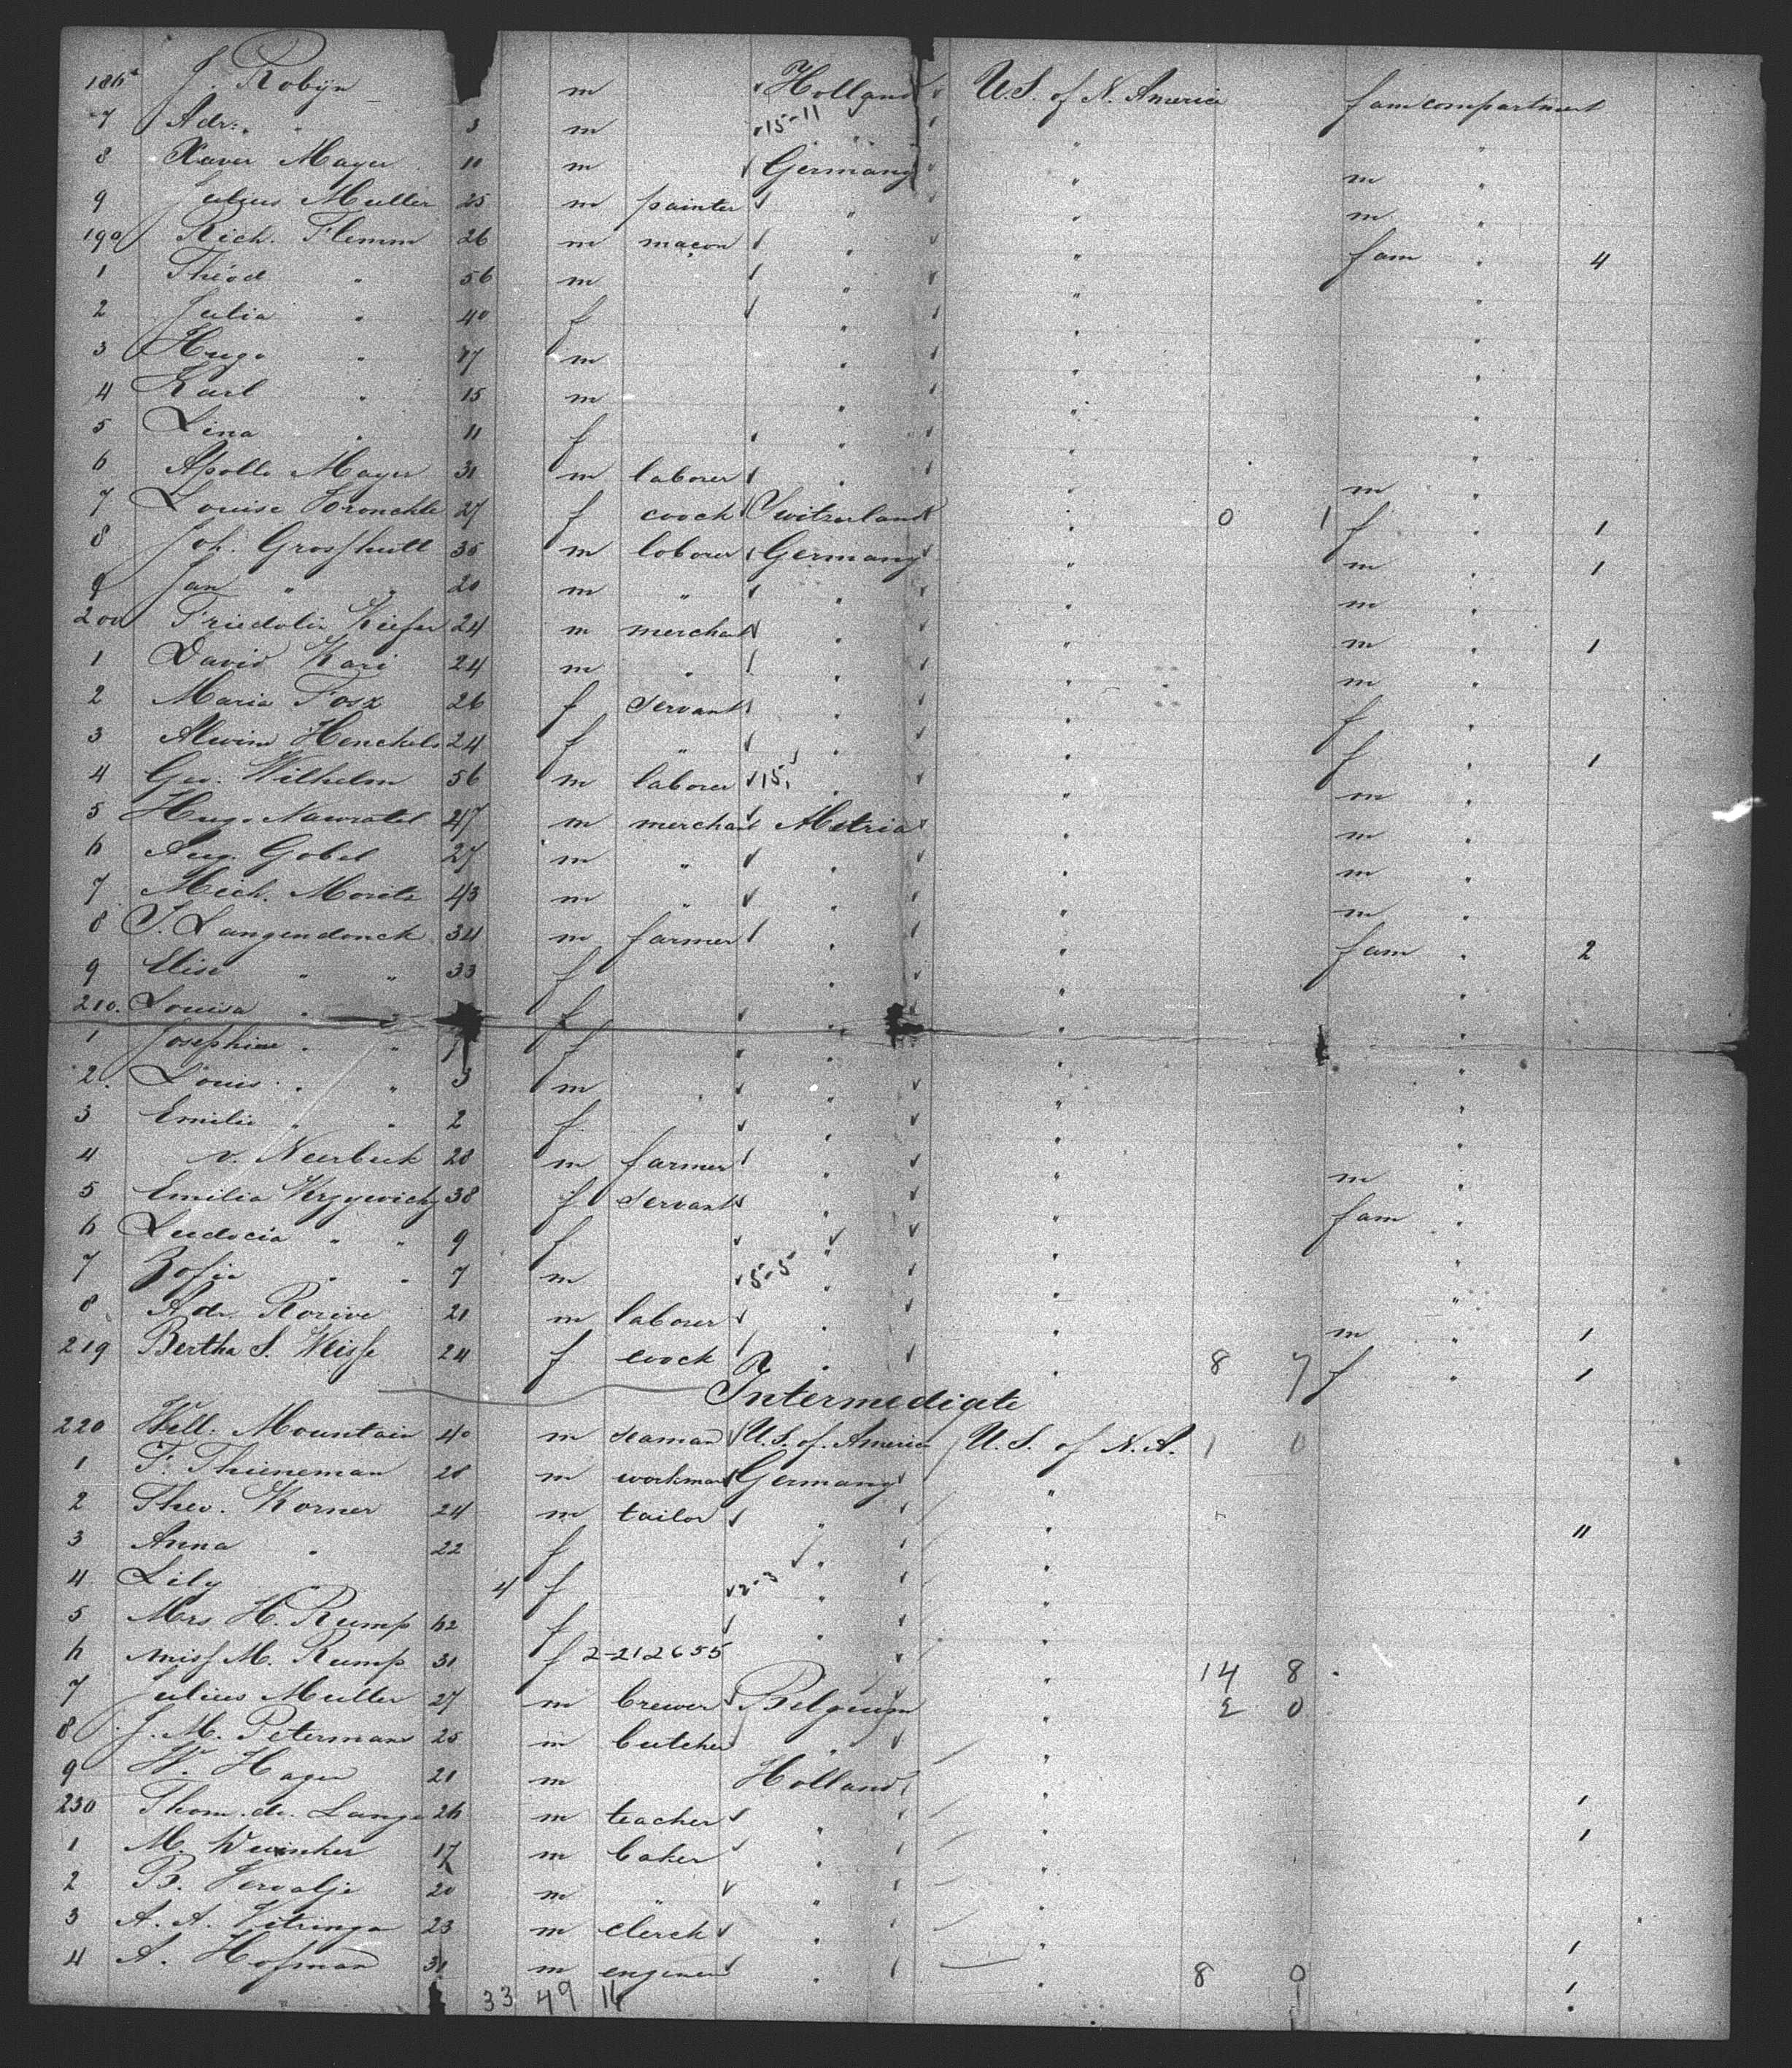 186 J. Robyn m Holland U.S. of N. America fam compartment
7 Adr. " 3 m 15-11 " " "
8 Xaver Mayer 11 m Germany " m "
9 Julius Muller 25 m painter " " m "
190 Rich. Flemm 26 m maçon " " fam " 4
1 Théod " 56 m " " "
2 Julia " 40 f " " "
3 Hugo " 17 m " " "
4 Karl " 15 m " " "
5 Lina " 11 f " " "
6 Apollo Mayer 31 m laborer " " m "
7 Louise 27 f coock Switzerland " 0 1 f " 1
8 Joh. Grosshutt 35 m loborer Germany " m " 1
9 Jan " " 20 m " " " m "
200 Friedolin Kiefer 24 m merchant " " m " 1
1 David Kari 24 m " " " m "
2 Maria Fosz 26 f servant " " f "
3 Alwine Henckels 24 f " " " f " 1
4 Geo. Wilhelm 56 m laborer 15 " " m "
5 Hugo Nawratel 47 m merchant Astria " m "
6 Aug. Gobel 27 m " " " m "
7 Mich. Moritz 43 m " " " m "
8 J. Langendonck 34 m farmer " " fam " 2
9 Elise " " 33 f " " "
210. Louisa " " f " " "
1 Josephine " " f " " "
2. Louis " " 3 m " " "
3 Emilie " " 2 f " " "
4 v. Neerbeek 28 m farmer " " m "
5 Emilia 38 f servant " " fam "
6 Ludocia " " 9 f " " "
7 Zofie " " 7 m 5-5 " " "
8 Adr. Rorive 21 m laborer " " m " 1
219 Bertha S. Weisse 24 f coock " " 8 7 f " 1
Intermediate
220 Will. Mountain 40 m seaman U.S. of America U.S. of N.A. 1 0
1 F. Thieneman 28 m workman Germany "
2 Theo. Korner 24 m tailor " " 11
3 Anna " 22 f " "
4 Lily " 4 f 2-3 " "
5 Mrs H. Rump 62 f " "
6 Miss M. Rump 31 f 2-212655 " 14 8
7 Julius Muller 27 m brewer Belgium " 2 0
8 J. M. Peterman 25 m butcher " "
9 W. Hager 21 m Holland " 1
230 Thom. de Lange 26 m teacher " " 1
1 M. 17 m baker " "
2 B. Vervalje 20 m " " "
3 A. A. Vitringa 23 m clerck " " 1
4 A. Hofman 31 m engineer " " 8 0 1
33 49 16